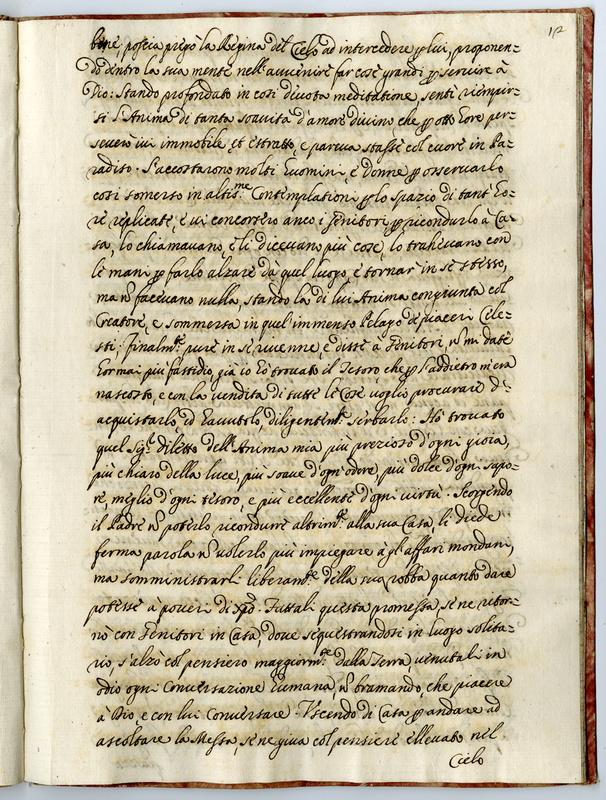 112
bene, poscia pregò la Regina del Cielo ad intercedere ꝑ lui, proponen=
dò dentro la sua mente nell'auuenire far cose grandi ꝑ seruire à
Dio: Stando profondato in così deuota meditatione, sentì riempir=
si l'Anima di tanta soauità d'amore diuino che ꝑ otto Hore per=
seuerò iui immobile, et estratto, e pareua stasse col cuore in Pa=
radiso. S'accostarono molti Huomini, e Donne ꝑ osseruarlo
così somerso in altis.me Contemplationi ꝑ lo spazio di tant'Ho=
re replicate, e ui concorsero anco i Genitori ꝑ ricondurlo à Ca=
sa, lo chiamauano, e li diceuano più cose, lo traheuano con
le mani ꝑ farlo alzare dà quel luogo, e tornar in se stesso,
ma ñ faceuano nulla, stando la di lui Anima congiunta col
Creatore, e sommersa in quel immenso Pelago de piaceri Cele=
sti; Finalm.te pure in se riuenne, e disse à Genitori, ñ mi date
Hormai più fastidio, già io hò trouato il Tesoro che ꝑ l'addietro m'era
nascosto, e con la vendita di tutte le Cose uoglio procurare d'
acquistarlo, ed hauutolo, diligentem.te serbarlo: Hò trouato
quel Sig.r Diletto dell'Anima mia più prezioso d'ogni gioia,
più chiaro della luce, più soaue d'ogn'odore, più dolce d'ogni sapo=
re, meglio d'ogni tesoro e più eccellente d'ogni uirtù. Scorgendo
il Padre ñ poterlo ricondurre altrim.te alla sua Casa li diede
ferma parola ñ uolerlo più impiegare à gl'affari mondani,
ma somministrarli liberam.te della sua robba quanto dare
potesse à poueri di Xpo. Fattali questa promessa, se ne ritor=
nò con Genitori in Casa, doue sequestrandosi in luogo solita=
rio, s'alzò col pensiero maggiorm.te dalla Terra, uenutali in
odio ogni Conuersazione humana, ñ bramando, che piacere
à Dio, e con lui Conuersare. Vscendo di Casa ꝑ andare ad
ascoltare la Messa, se ne giua col pensiere elleuato nel
Cielo